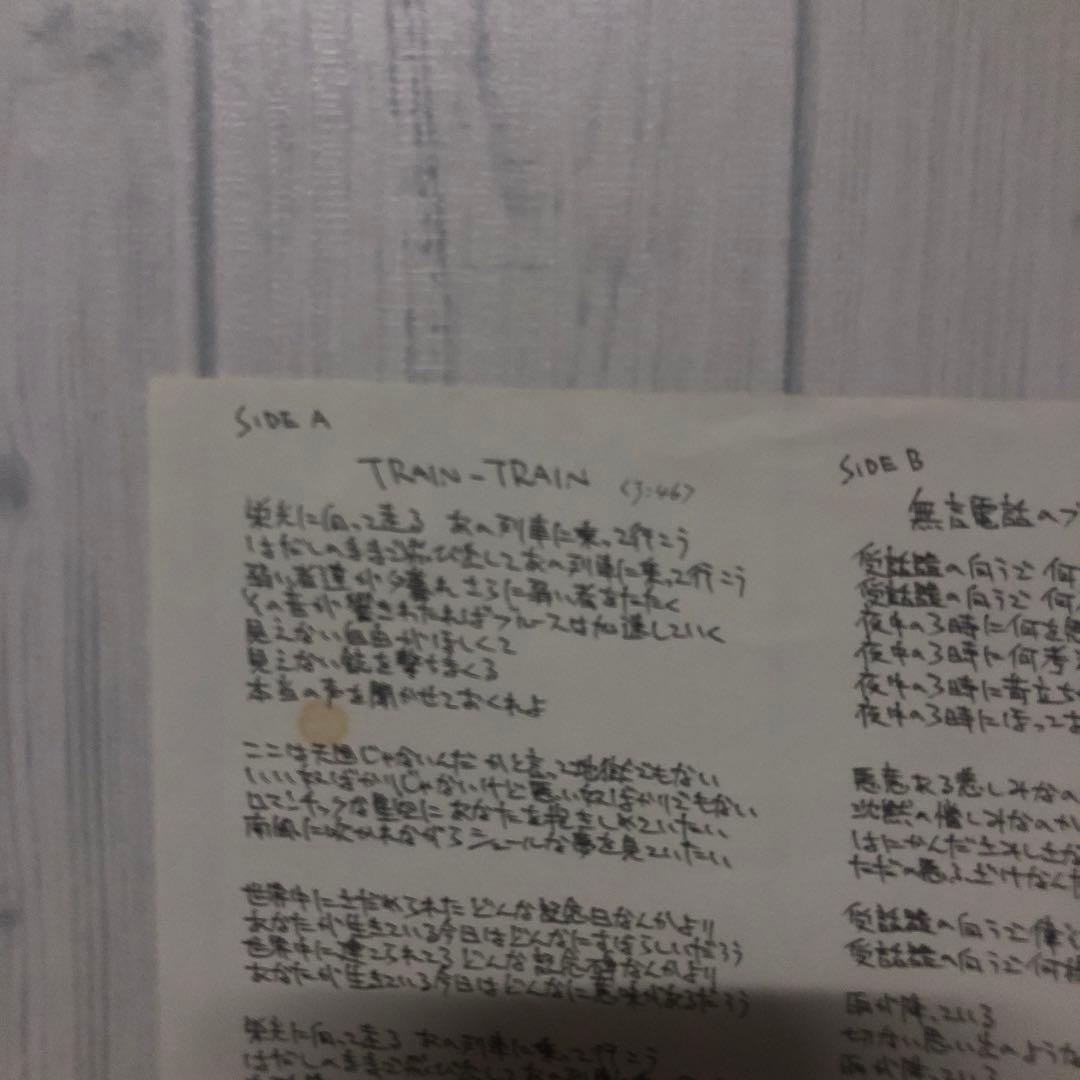 SIDE A
TRAIN-TRAIN <3:46>
栄光に向って走る あの列車に乗って行こう
はだしのままで飛び出して あの列車に乗って行こう
弱い者達が夕暮れ さらに弱い者をたたく
その音が響きわたれば ブルースは加速していく
見えない自由がほしくて
見えない銃を撃ちまくる
本当の声を聞かせておくれよ
ここは天国じゃないんだ かと言って地獄でもない
いい奴ばかりじゃないけど 悪い奴ばかりでもない
ロマンチックな星空に あなたを抱きしめていたい
南風に吹かれながら シュールな夢を見ていたい
世界中にさだめられた どんな記念日なんかより
あなたが生きている今日は どんなにすばらしいだろう
世界中に建てられてる どんな記念碑なんかより
あなたが生きている今日は どんなに意味があるだろう
栄光に向って走る あの列車に乗って行こう
はだしのままで飛び出して あの列車に乗って行こう
SIDE B
無言電話のブ
受話器の向うで 何
受話器の向うで 何
夜中の3時に何を思
夜中の3時に何考え
夜中の3時に苛立ち
夜中の3時にほってお
悪意ある悲しみなの
沈黙の憎しみなのか
はにかんださみしさな
ただの悪ふざけなんだ
受話器の向うで 偉そ
受話器の向うで 何様
雨が降っている
切ない思い出のような
雨が降っている